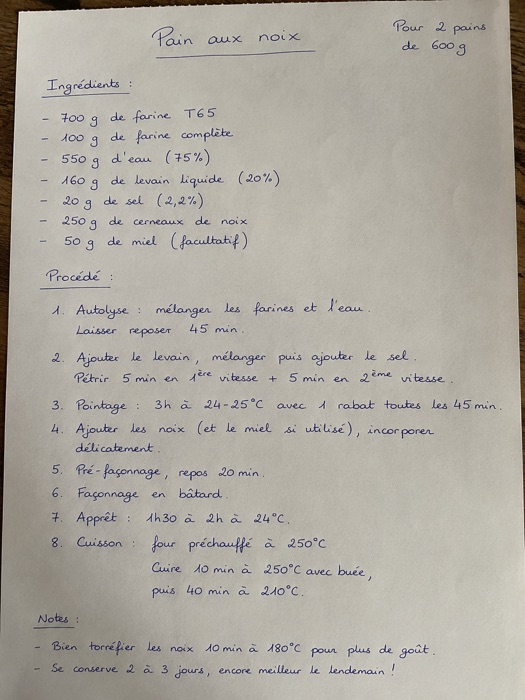 Pain aux noix
Pour 2 pains
de 600 g
Ingrédients :
- 700 g de farine T65
- 100 g de farine complète
- 550 g d'eau (75%)
- 160 g de levain liquide (20%)
- 20 g de sel (2,2%)
- 250 g de cerneaux de noix
- 50 g de miel (facultatif)
Procédé :
1. Autolyse : mélanger les farines et l'eau.
Laisser reposer 45 min.
2. Ajouter le levain, mélanger puis ajouter le sel.
Pétrir 5 min en 1ère vitesse + 5 min en 2ème vitesse.
3. Pointage : 3h à 24-25°C avec 1 rabat toutes les 45 min.
4. Ajouter les noix (et le miel si utilisé), incorporer
délicatement.
5. Pré-façonnage, repos 20 min.
6. Façonnage en bâtard.
7. Apprêt : 1h30 à 2h à 24°C.
8. Cuisson : four préchauffé à 250°C
Cuire 10 min à 250°C avec buée,
puis 40 min à 210°C.
Notes :
- Bien torréfier les noix 10 min à 180°C pour plus de goût.
- Se conserve 2 à 3 jours, encore meilleur le lendemain !